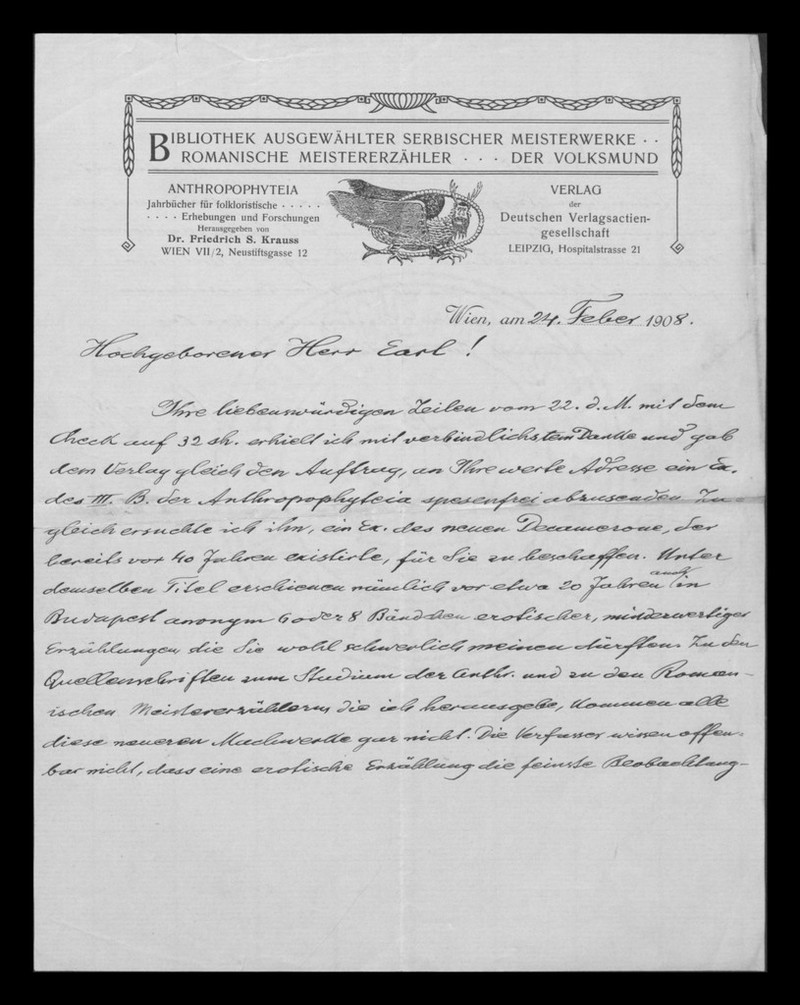 BIBLIOTHEK AUSGEWÄHLTER SERBISCHER MEISTERWERKE · ·
ROMANISCHE MEISTERERZÄHLER · · · DER VOLKSMUND
ANTHROPOPHYTEIA
Jahrbücher für folkloristische · · · · ·
· · · · Erhebungen und Forschungen
Herausgegeben von
Dr. Friedrich S. Krauss
WIEN VII/2, Neustiftsgasse 12
VERLAG
der
Deutschen Verlagsactien-
gesellschaft
LEIPZIG, Hospitalstrasse 21
Wien, am 24. Feber 1908.
Hochgeborener Herr Earl!
Ihre liebenswürdigen Zeilen vom 22. d. M. mit dem
Check auf 32 sh. erhielt ich mit verbindlichstem Danke und gab
dem Verlag gleich den Auftrag, an Ihre werte Adresse ein Ex.
des III. B. der Anthropophyteia spesenfrei abzusenden. Zu-
gleich ersuchte ich ihn, ein Ex. des neuen Decamerone, der
bereits vor 40 Jahren existirte, für Sie zu beschaffen. Unter
demselben Titel erschienen nämlich vor etwa 20 Jahren auch in
Budapest anonym 6 oder 8 Bändchen erotischer, minderwertiger
Erzählungen, die Sie wohl schwerlich meinen dürften. Zu den
Quellenschriften zum Studium der Anthr. und zu den Roman-
ischen Meistererzählern, die ich herausgebe, kommen alle
diese neueren Machwerke gar nicht. Die Verfasser wissen offen-
bar nicht, dass eine erotische Erzählung die feinste Beobachtung-